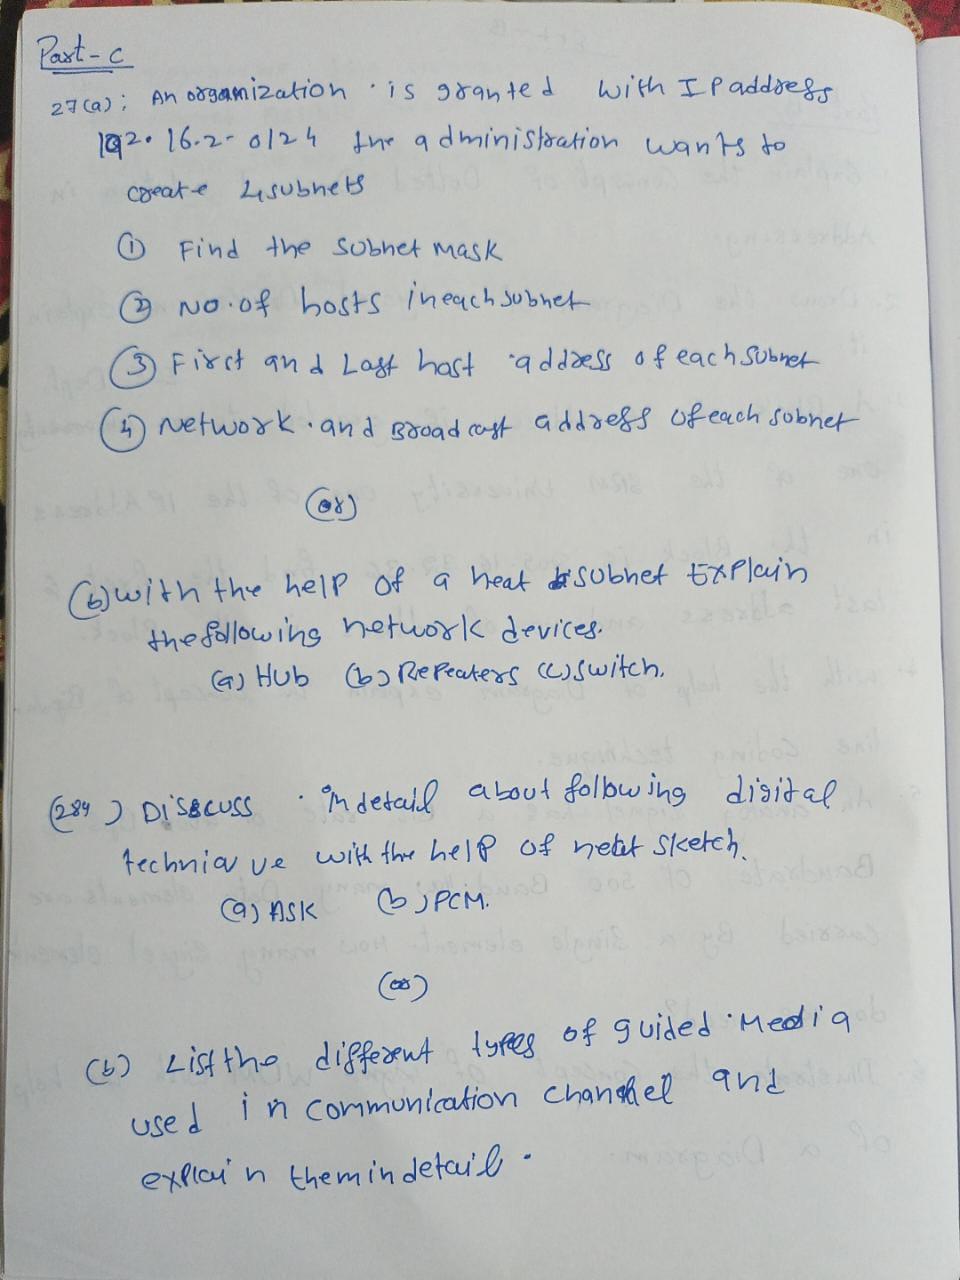 Part-C
27(a): An organization is granted with IP address
192.16.2-0/24 the administration wants to
create 4subnets
① Find the Subnet Mask
② No.of hosts ineach subnet
③ First and Last host address of each Subnet
④ Network.and Broadcast address Of each subnet
(or)
(b) with the help of a neat subnet Explain
the following network devices.
(a) HUb (b) Repeaters (c) switch.
(28a) Discuss in detail about following digital
technique with the help of neat sketch.
(a) ASK (b) PCM.
(or)
(b) List the different types of guided Media
used in communication channel and
explain them in detail.